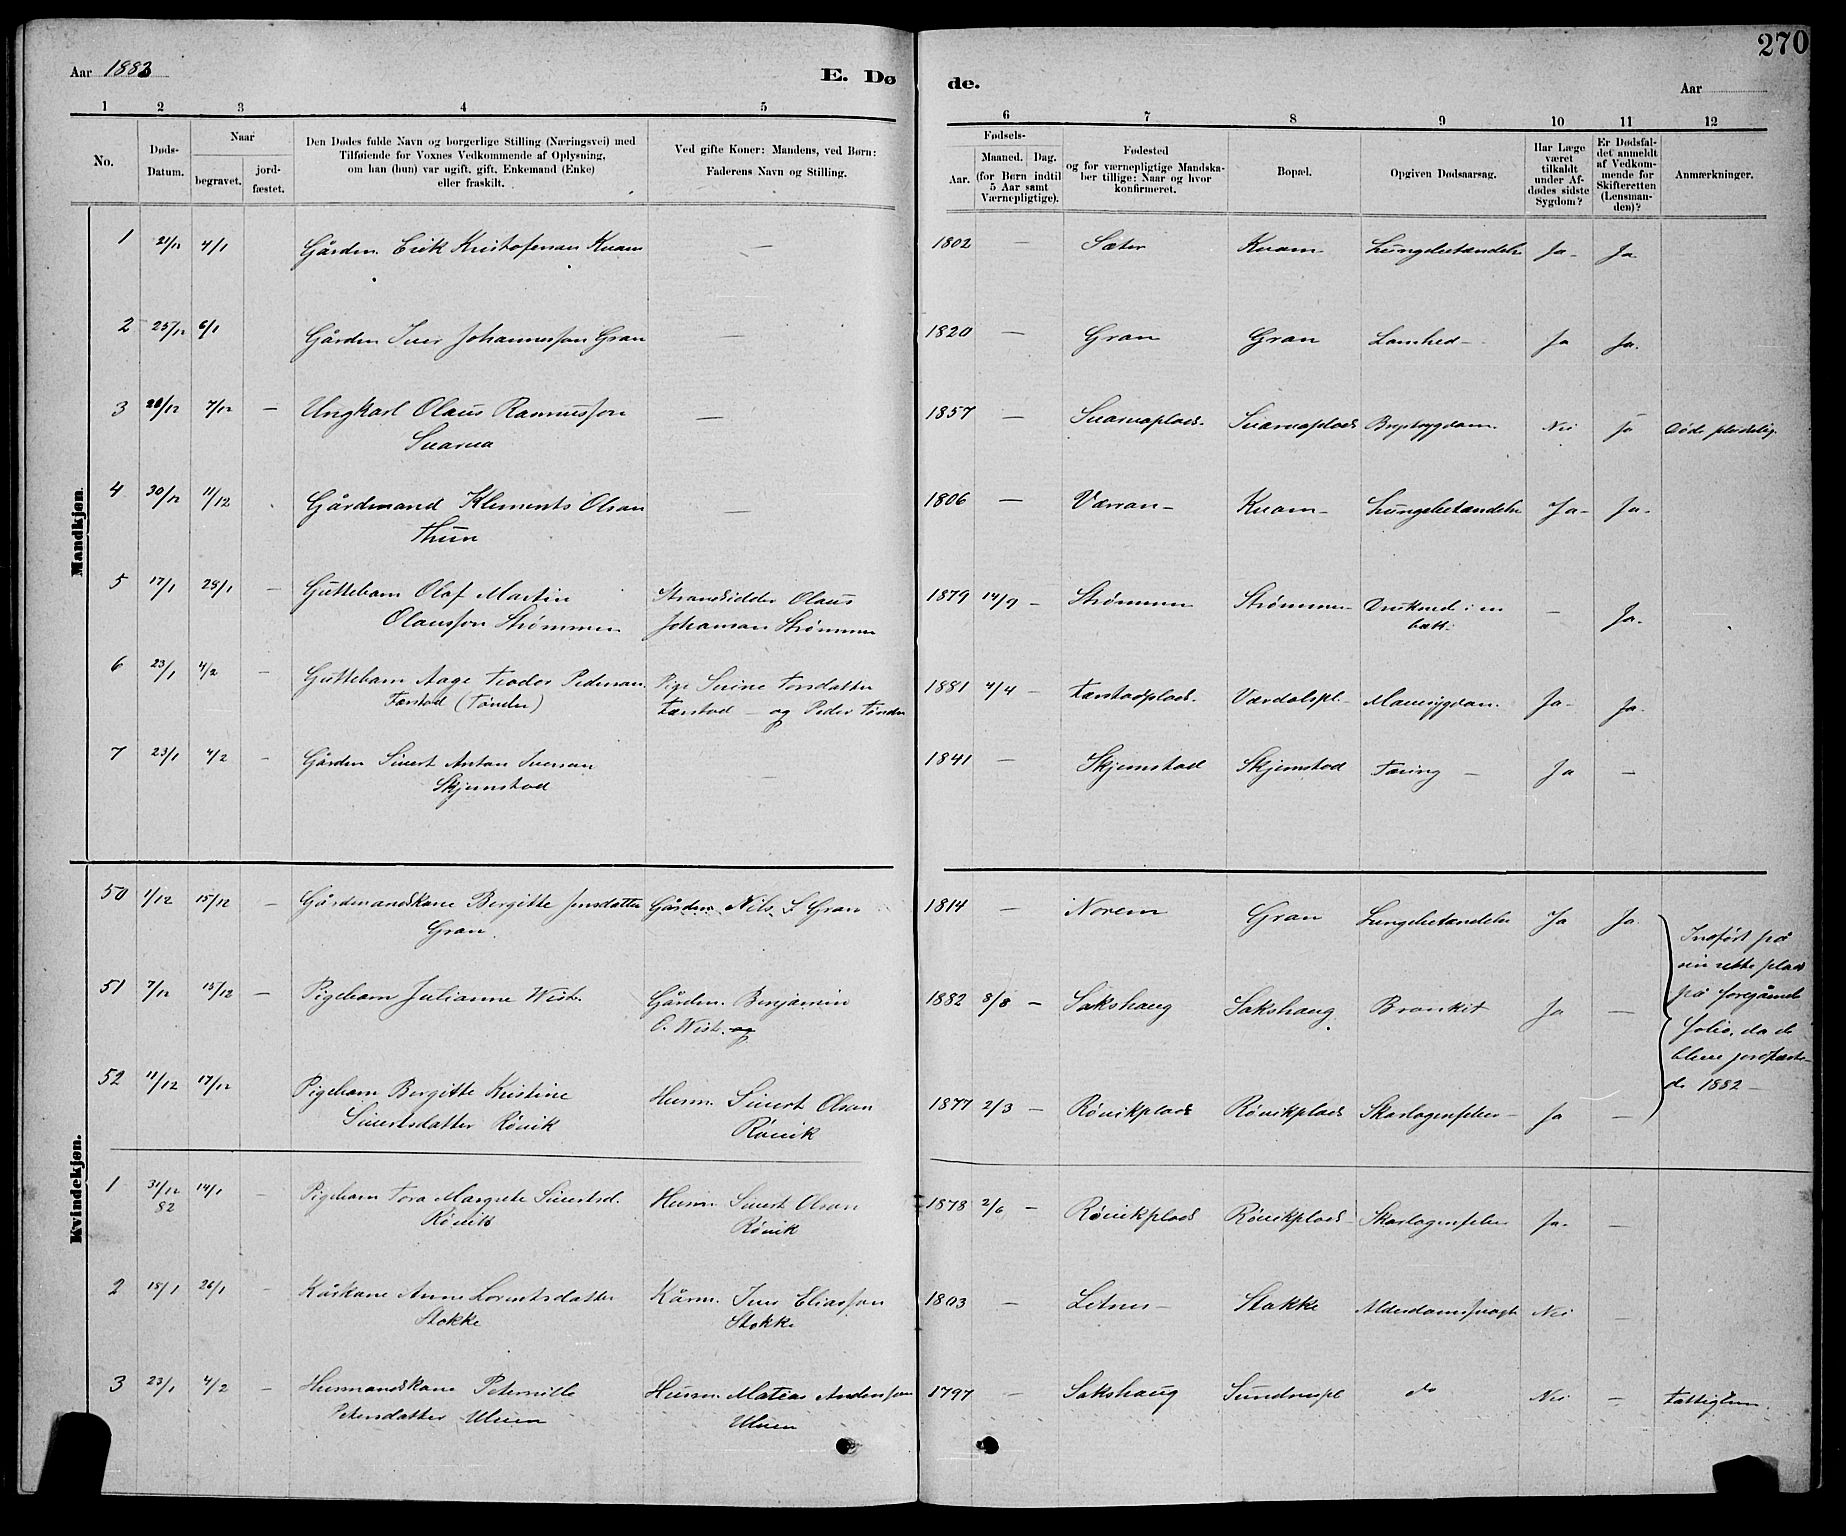 270
Aar 1883
E. Dø
de.
Aar
1 2 3 4 5 6 7 8 9 10 11 12
No.
Døds-Datum.
Naar
begravet.
jord-fæstet.
Den Dødes fulde Navn og borgerlige Stilling (Næringsvei) med
Tilføiende for Voxnes Vedkommende af Oplysning,
om han (hun) var ugift, gift, Enkemand (Enke)
eller fraskilt.
Ved gifte Koner: Mandens, ved Børn:
Faderens Navn og Stilling.
Fødsels-
Aar.
Maaned. Dag.
(for Børn indtil
5 Aar samt
Værnepligtige).
Fødested
og for værnepligtige Mandska-
ber tillige: Naar og hvor
konfirmeret.
Bopæl.
Opgiven Dødsaarsag.
Har Læge
været
tilkaldt
under Af-
dødes sidste
Sygdom?
Er Dødsfal-
det anmeldt
af Vedkom-
mende for
Skifteretten
(Lensman-
den)?
Anmærkninger.
Mandkjøn.
1 21/12 4/1 Gårdm. Erik Kristofersan Kvam — 1802 — Sæter Kvam Lungebetændelse Ja - Ja
2 25/12 6/1 Gårdm Iver Johannesson Gran — 1820 — Gran Gran Lamhed - Ja Ja.
3 28/12 7/12 — Ungkarl Olaus Rasmusson — 1857 — Svarvaplads. Svarvaplads Brystsygdom. Nei Ja Døde pludselig.
Svarva
4 30/12 11/12 Gårdmand Klements Olsan — 1806 — Værran - Kvam - Lungebetændelse Ja - Ja.
Thun
5 17/1 28/1 — Guttebarn Olaf Martin Strandsidder Olaus 1879 14/9 — Strømmen Strømmen Druknede i en — Ja.
Olausson Strømmen Johansan Strømmen bæk.
6 23/1 4/2 — Guttebarn Aage Teodor Pedersan Pige Serine Torsdatter 1881 4/4 — Tærstadplads. Værdalspl. Mavesygdom. Ja - Ja.
Færstad (Tønder) Færstad — og Peder Tønder
7 23/1 4/2 — Gårdm Sivert Antan Iversan — 1841 — Skjemstad Skjemstad Tæring — Ja —
Skjemstad
Kvindekjøn.
50 1/12 15/12 — Gårdmandskone Bergitte Jensdatter Gårdm. Nils S. Gran 1814 — Norem Gran Lungebetændelse Ja Ja
Gran.
51 7/12 15/12 — Pigebarn Julianne Wist. Gårdm. Benjamin 1882 8/8 — Sakshaug Sakshaug Bronkit Ja —
O. Wist. og
52 11/12 17/12 Pigebarn Bergitte Kristine Husm. Sivert Olsan 1877 2/3 — Røvikplads Røvikplads Skarlagensfeber - Ja —
Sivertsdatter Røvik Røvik
Indført på
sin rette plads
på foregående
folio, da de
bleve jordfæste-
de 1882 —
1 31/12 82 14/1 — Pigebarn Tora Margrete Sivertsd. Husm. Sivert Olsan 1878 2/6 — Røvikplads Røvikplads Skarlagensfeber Ja. —
Røvik Røvik
2 18/1 26/1 — Kårkone Anne Lorentsdatter Kårm. Iver Eliasson 1803 — Letnes - Stokke Alderdomssvagh. Nei —
Stokke Stokke
3 23/1 4/2 — Husmandskone Peternille Husm. Matias Andersson 1797 — Sakshaug Sundnespl do Nei — Fattiglem.
Petersdatter Ulven Ulven